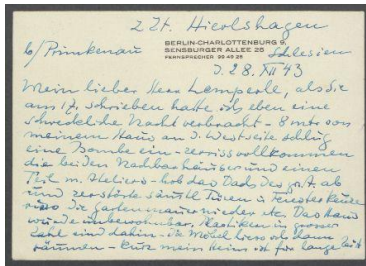 z Zt. Hierlshagen
b/Primkenau
BERLIN-CHARLOTTENBURG 9,
SENSBURGER ALLEE 26
FERNSPRECHER 99 45 26
Schlesien
d. 28. XII 43
Mein lieber Herr Lemperle, als Sie
am 17. schrieben hatte ich eben eine
schreckliche Nacht verbracht - 8 mtr von
meinem Haus an d. Westseite schlug
eine Bombe ein - zerriss vollkommen
die beiden Nachbarhäuser und einen
Teil m. Ateliers - hob das Dach des ab
und zerstörte sämtl Türen u Fenster
riss die Gartenmauer nieder etc. Das Haus
wurde unbewohnbar, Plastiken in grosser
Zahl sind dahin - die Möbel liess ich dann
räumen - Kurz mein Heim ist für lange Zeit